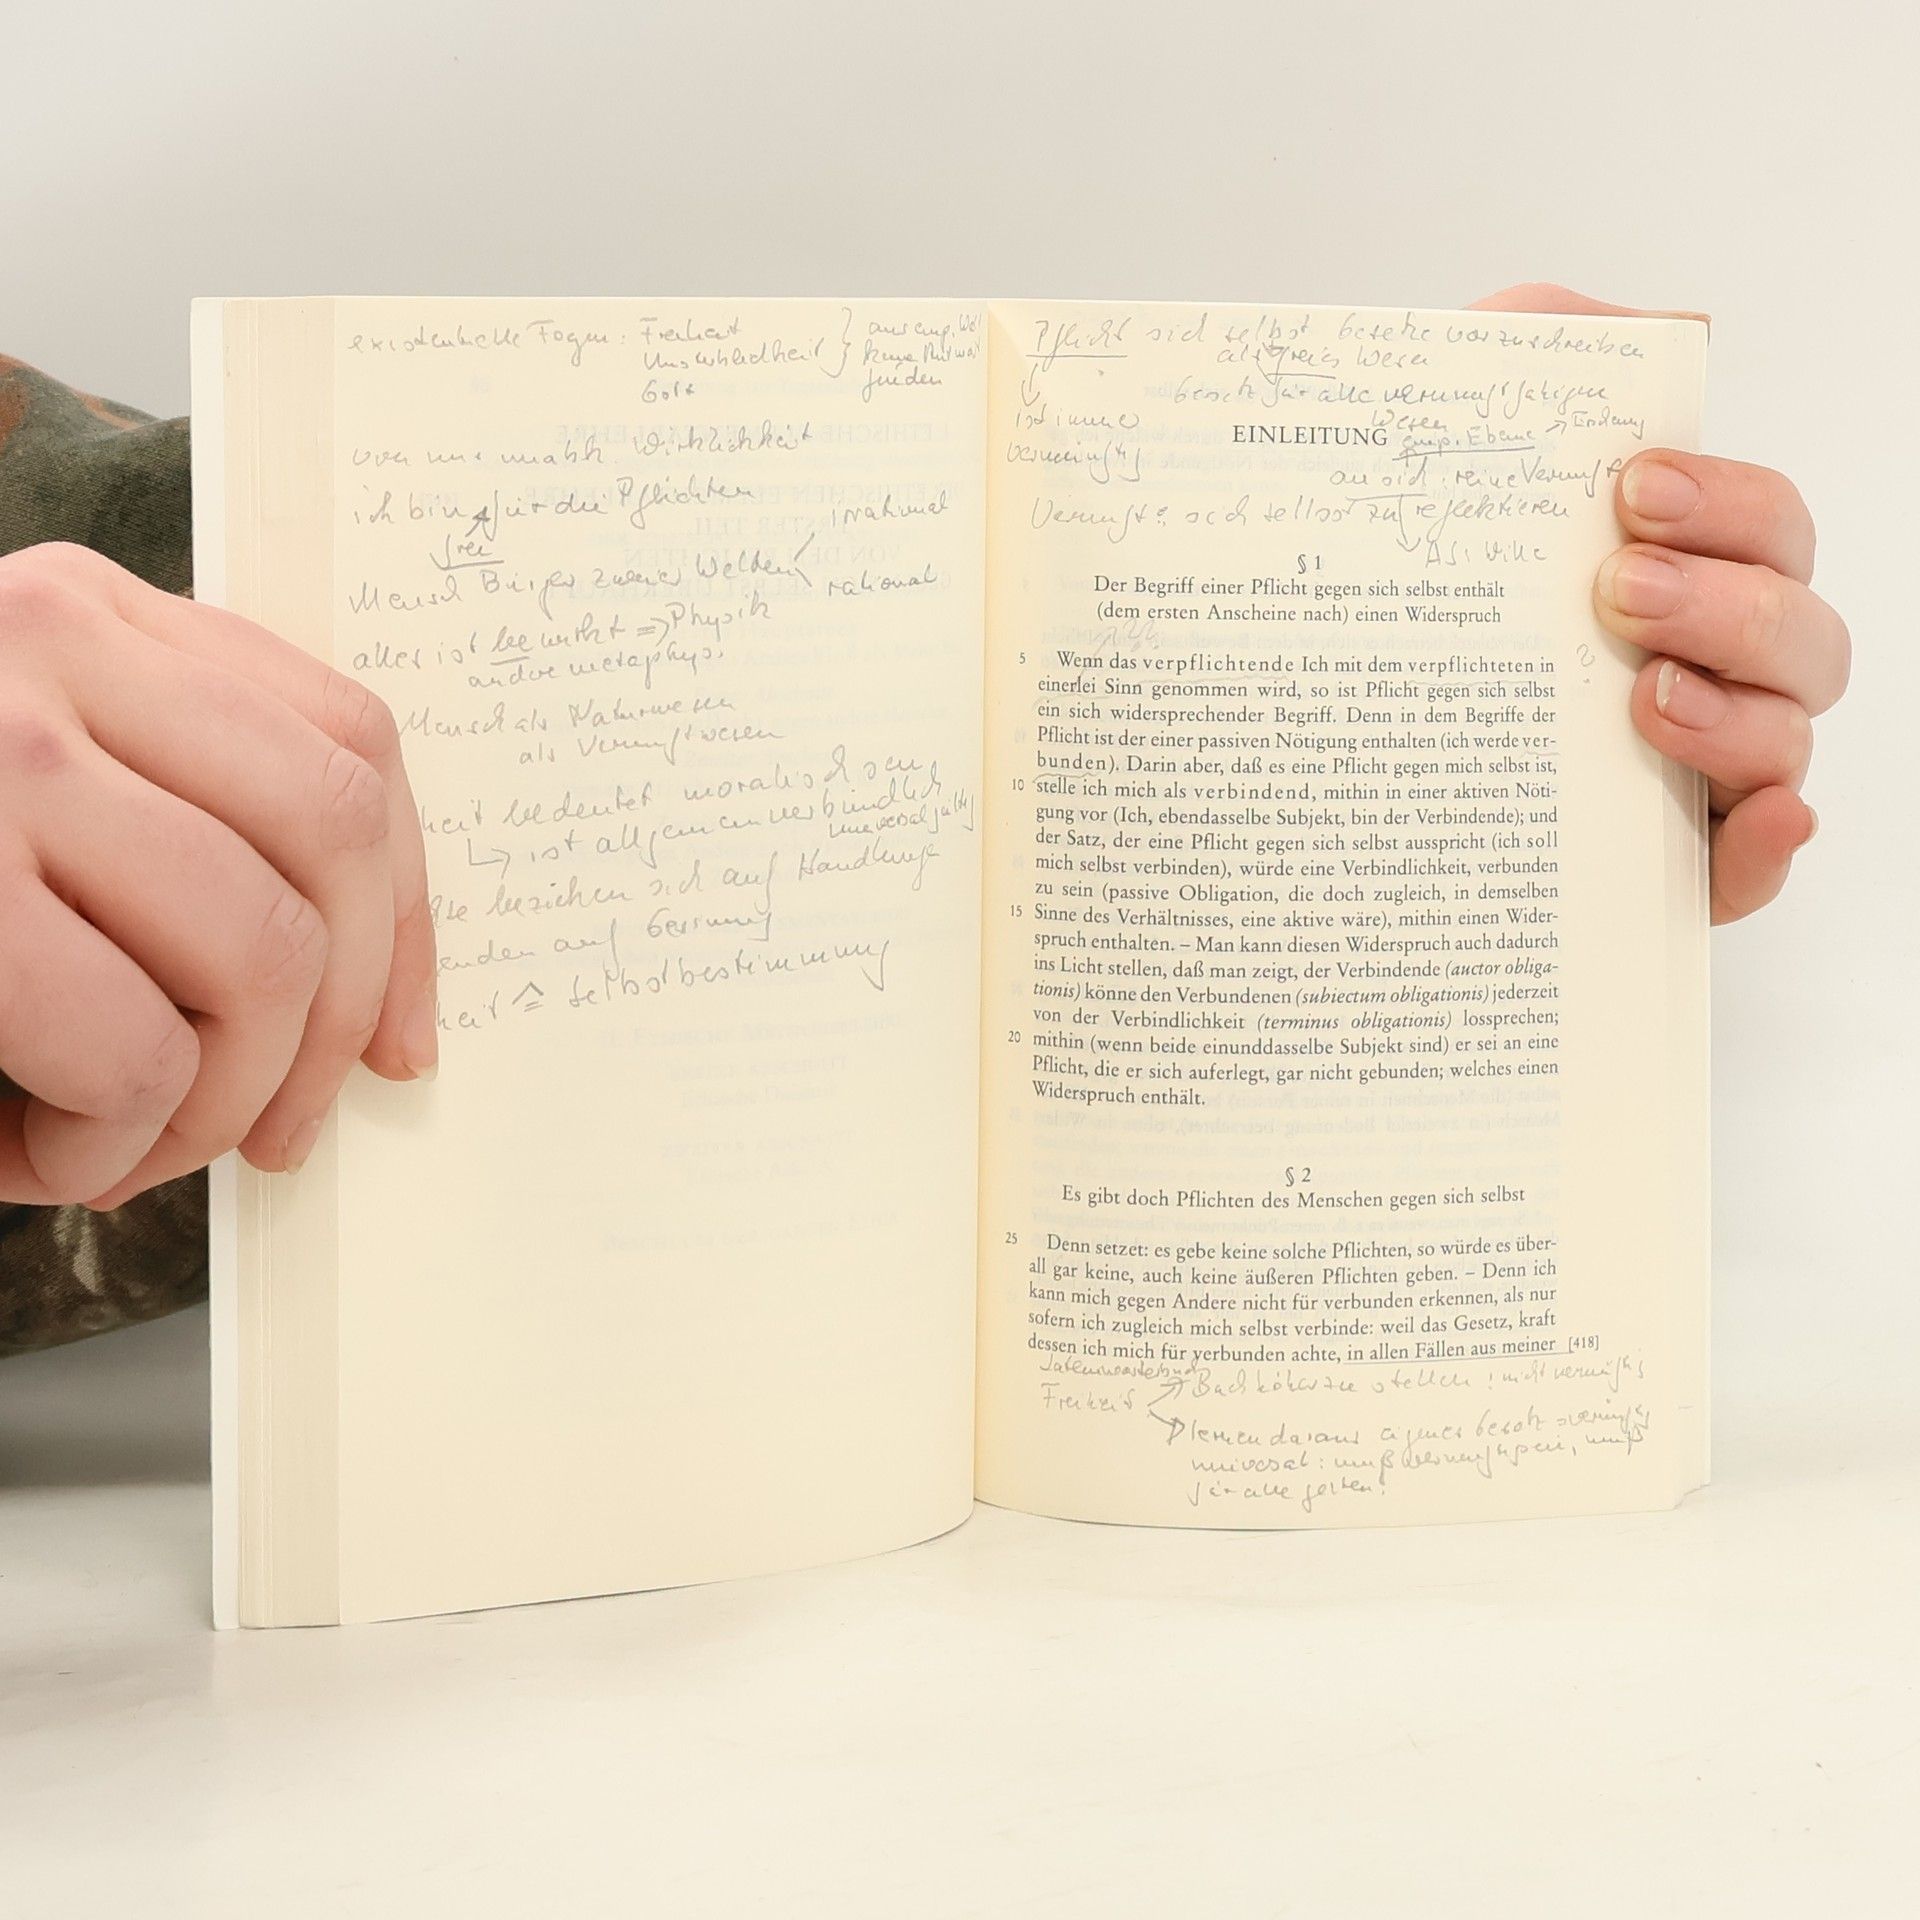 Freiheit
Unsterblichkeit
Gott
keine Antwort
finden
Wirklichkeit
ich bin für die Pflichten
frei
irrational
Mensch Bürger zweier Welten
rational
alles ist bewirkt => Physik
Mensch als Naturwesen
als Vernunftwesen
heit bedeutet moralisch sein
ist allgemein verbindlich
beziehen sich auf Handlunge
auf
heit ≙ Selbstbestimmung
Pflicht sich selbst Gesetze vorzuschreiben
als freies Wesen
Gesetz für alle vernunftfähigen
Wesen
ist immer
EINLEITUNG
emp. Ebene
vernünftig
an sich: reine Vernunft
Vernunft: sich selbst zu reflektieren
§ 1
Der Begriff einer Pflicht gegen sich selbst enthält
(dem ersten Anscheine nach) einen Widerspruch
???
5 Wenn das verpflichtende Ich mit dem verpflichteten in
?
einerlei Sinn genommen wird, so ist Pflicht gegen sich selbst
ein sich widersprechender Begriff. Denn in dem Begriffe der
Pflicht ist der einer passiven Nötigung enthalten (ich werde ver-
bunden). Darin aber, daß es eine Pflicht gegen mich selbst ist,
10 stelle ich mich als verbindend, mithin in einer aktiven Nöti-
gung vor (Ich, ebendasselbe Subjekt, bin der Verbindende); und
der Satz, der eine Pflicht gegen sich selbst ausspricht (ich soll
mich selbst verbinden), würde eine Verbindlichkeit, verbunden
zu sein (passive Obligation, die doch zugleich, in demselben
15 Sinne des Verhältnisses, eine aktive wäre), mithin einen Wider-
spruch enthalten. – Man kann diesen Widerspruch auch dadurch
ins Licht stellen, daß man zeigt, der Verbindende (auctor obliga-
tionis) könne den Verbundenen (subiectum obligationis) jederzeit
von der Verbindlichkeit (terminus obligationis) lossprechen;
20 mithin (wenn beide einunddasselbe Subjekt sind) er sei an eine
Pflicht, die er sich auferlegt, gar nicht gebunden; welches einen
Widerspruch enthält.
§ 2
Es gibt doch Pflichten des Menschen gegen sich selbst
25 Denn setzet: es gebe keine solche Pflichten, so würde es über-
all gar keine, auch keine äußeren Pflichten geben. – Denn ich
kann mich gegen Andere nicht für verbunden erkennen, als nur
sofern ich zugleich mich selbst verbinde: weil das Gesetz, kraft
dessen ich mich für verbunden achte, in allen Fällen aus meiner [418]
Lateinwörterbuch
Freiheit
stellen
! nicht vernünftig
lernen daraus eigenes Gesetz
universal: muß
für alle gelten!